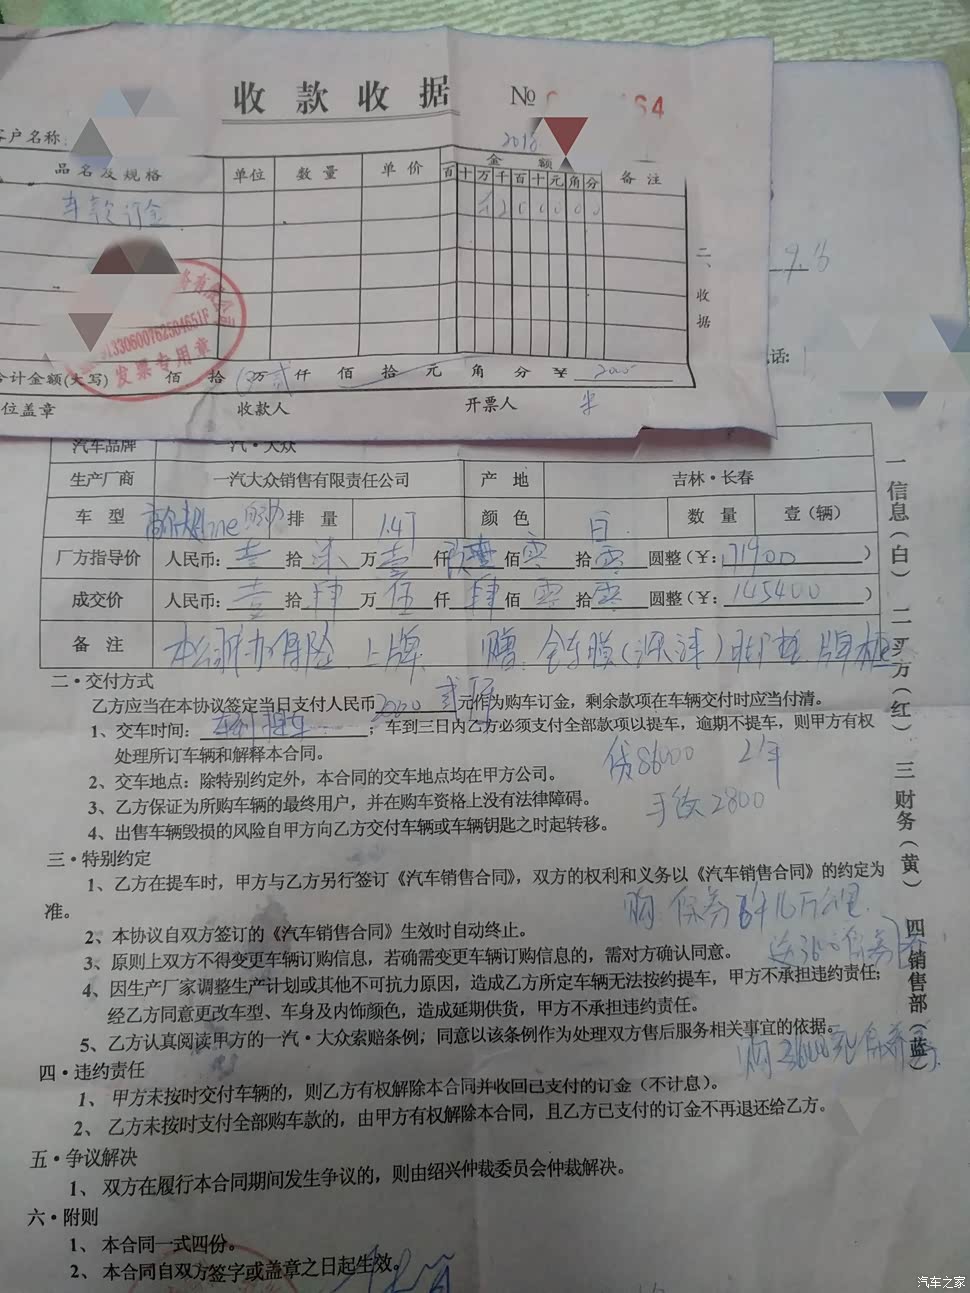 收款收据 №
64
客户名称:
2018
品名及规格 单位 数量 单价 金额 备注
百十万千百十元角分
车款订金
200000
二、收据
13306007625046511F
发票专用章
合计金额(大写) 佰 拾 万贰仟 佰 拾 元 角 分 ¥ 2000
位盖章 收款人 开票人
话:
汽车品牌 一汽·大众
生产厂商 一汽大众销售有限责任公司 产地 吉林·长春
车型 排量 1.4T 颜色 白 数量 壹(辆)
厂方指导价 人民币: 壹 拾 柒 万 壹 仟 佰 零 拾 零 圆整(¥: 171900 )
成交价 人民币: 壹 拾 肆 万 伍 仟 肆 佰 零 拾 零 圆整(¥: 145400 )
备注 本公司办保险 上牌 赠 全车膜 脚垫 牌框
二·交付方式
乙方应当在本协议签定当日支付人民币 2000 贰仟 元作为购车订金，剩余款项在车辆交付时应当付清。
1、交车时间: ；车到三日内乙方必须支付全部款项以提车，逾期不提车，则甲方有权
处理所订车辆和解释本合同。
贷86000 2年
2、交车地点：除特别约定外，本合同的交车地点均在甲方公司。
3、乙方保证为所购车辆的最终用户，并在购车资格上没有法律障碍。
手续2800
4、出售车辆毁损的风险自甲方向乙方交付车辆或车辆钥匙之时起转移。
三·特别约定
1、乙方在提车时，甲方与乙方另行签订《汽车销售合同》，双方的权利和义务以《汽车销售合同》的约定为
准。
2、本协议自双方签订的《汽车销售合同》生效时自动终止。
3、原则上双方不得变更车辆订购信息，若确需变更车辆订购信息的，需对方确认同意。
4、因生产厂家调整生产计划或其他不可抗力原因，造成乙方所定车辆无法按约提车，甲方不承担违约责任；
经乙方同意更改车型、车身及内饰颜色，造成延期供货，甲方不承担违约责任。
5、乙方认真阅读甲方的一汽·大众索赔条例；同意以该条例作为处理双方售后服务相关事宜的依据。
四·违约责任
1、甲方未按时交付车辆的，则乙方有权解除本合同并收回已支付的订金（不计息）。
2、乙方未按时支付全部购车款的，由甲方有权解除本合同，且乙方已支付的订金不再退还给乙方。
五·争议解决
1、双方在履行本合同期间发生争议的，则由绍兴仲裁委员会仲裁解决。
六·附则
1、本合同一式四份。
2、本合同自双方签字或盖章之日起生效。
一信息(白) 二买方(红) 三财务(黄) 四销售部(蓝)
汽车之家